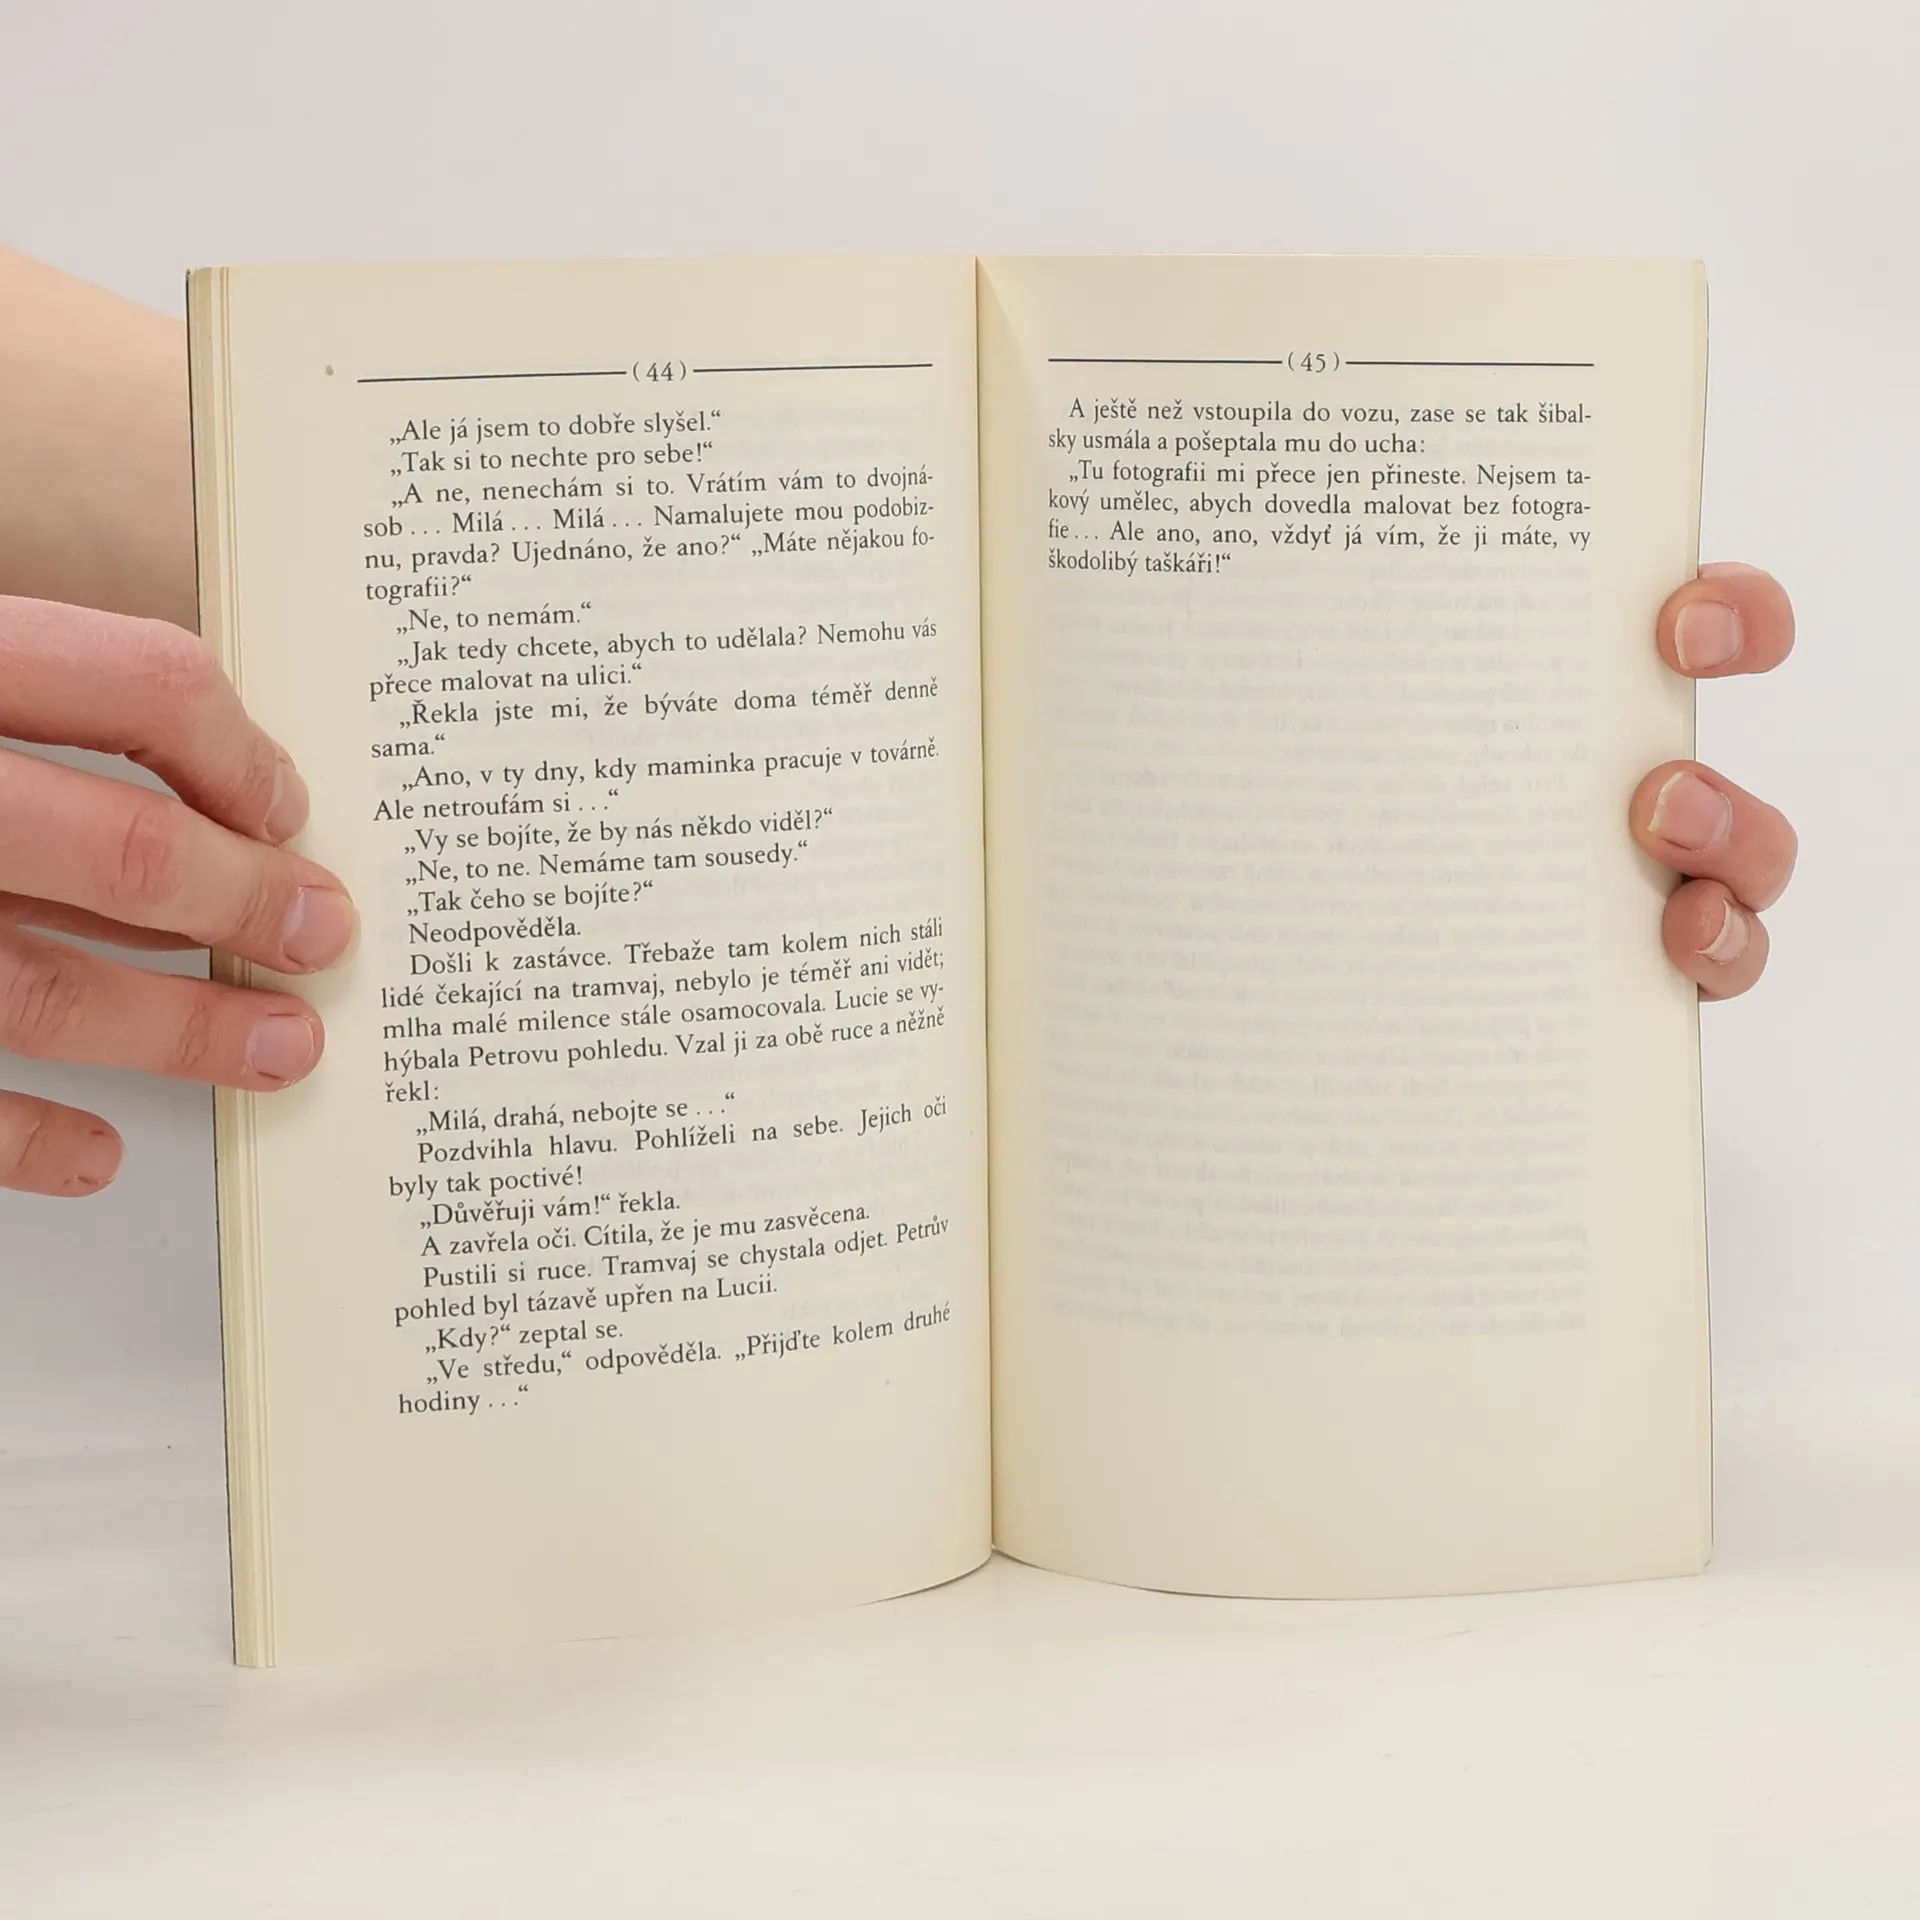 (44)
„Ale já jsem to dobře slyšel.“
„Tak si to nechte pro sebe!“
„A ne, nenechám si to. Vrátím vám to dvojná-
sob... Milá... Milá... Namalujete mou podobiz-
nu, pravda? Ujednáno, že ano?“ „Máte nějakou fo-
tografii?“
„Ne, to nemám.“
„Jak tedy chcete, abych to udělala? Nemohu vás
přece malovat na ulici.“
„Řekla jste mi, že býváte doma téměř denně
sama.“
„Ano, v ty dny, kdy maminka pracuje v továrně.
Ale netroufám si...“
„Vy se bojíte, že by nás někdo viděl?“
„Ne, to ne. Nemáme tam sousedy.“
„Tak čeho se bojíte?“
Neodpověděla.
Došli k zastávce. Třebaže tam kolem nich stáli
lidé čekající na tramvaj, nebylo je téměř ani vidět;
mlha malé milence stále osamocovala. Lucie se vy-
hýbala Petrovu pohledu. Vzal ji za obě ruce a něžně
řekl:
„Milá, drahá, nebojte se...“
Pozdvihla hlavu. Pohlíželi na sebe. Jejich oči
byly tak poctivé!
„Důvěřuji vám!“ řekla.
A zavřela oči. Cítila, že je mu zasvěcena.
Pustili si ruce. Tramvaj se chystala odjet. Petrův
pohled byl tázavě upřen na Lucii.
„Kdy?“ zeptal se.
„Ve středu,“ odpověděla. „Přijďte kolem druhé
hodiny...“
(45)
A ještě než vstoupila do vozu, zase se tak šibal-
sky usmála a pošeptala mu do ucha:
„Tu fotografii mi přece jen přineste. Nejsem ta-
kový umělec, abych dovedla malovat bez fotogra-
fie... Ale ano, ano, vždyť já vím, že ji máte, vy
škodolibý taškáři!“